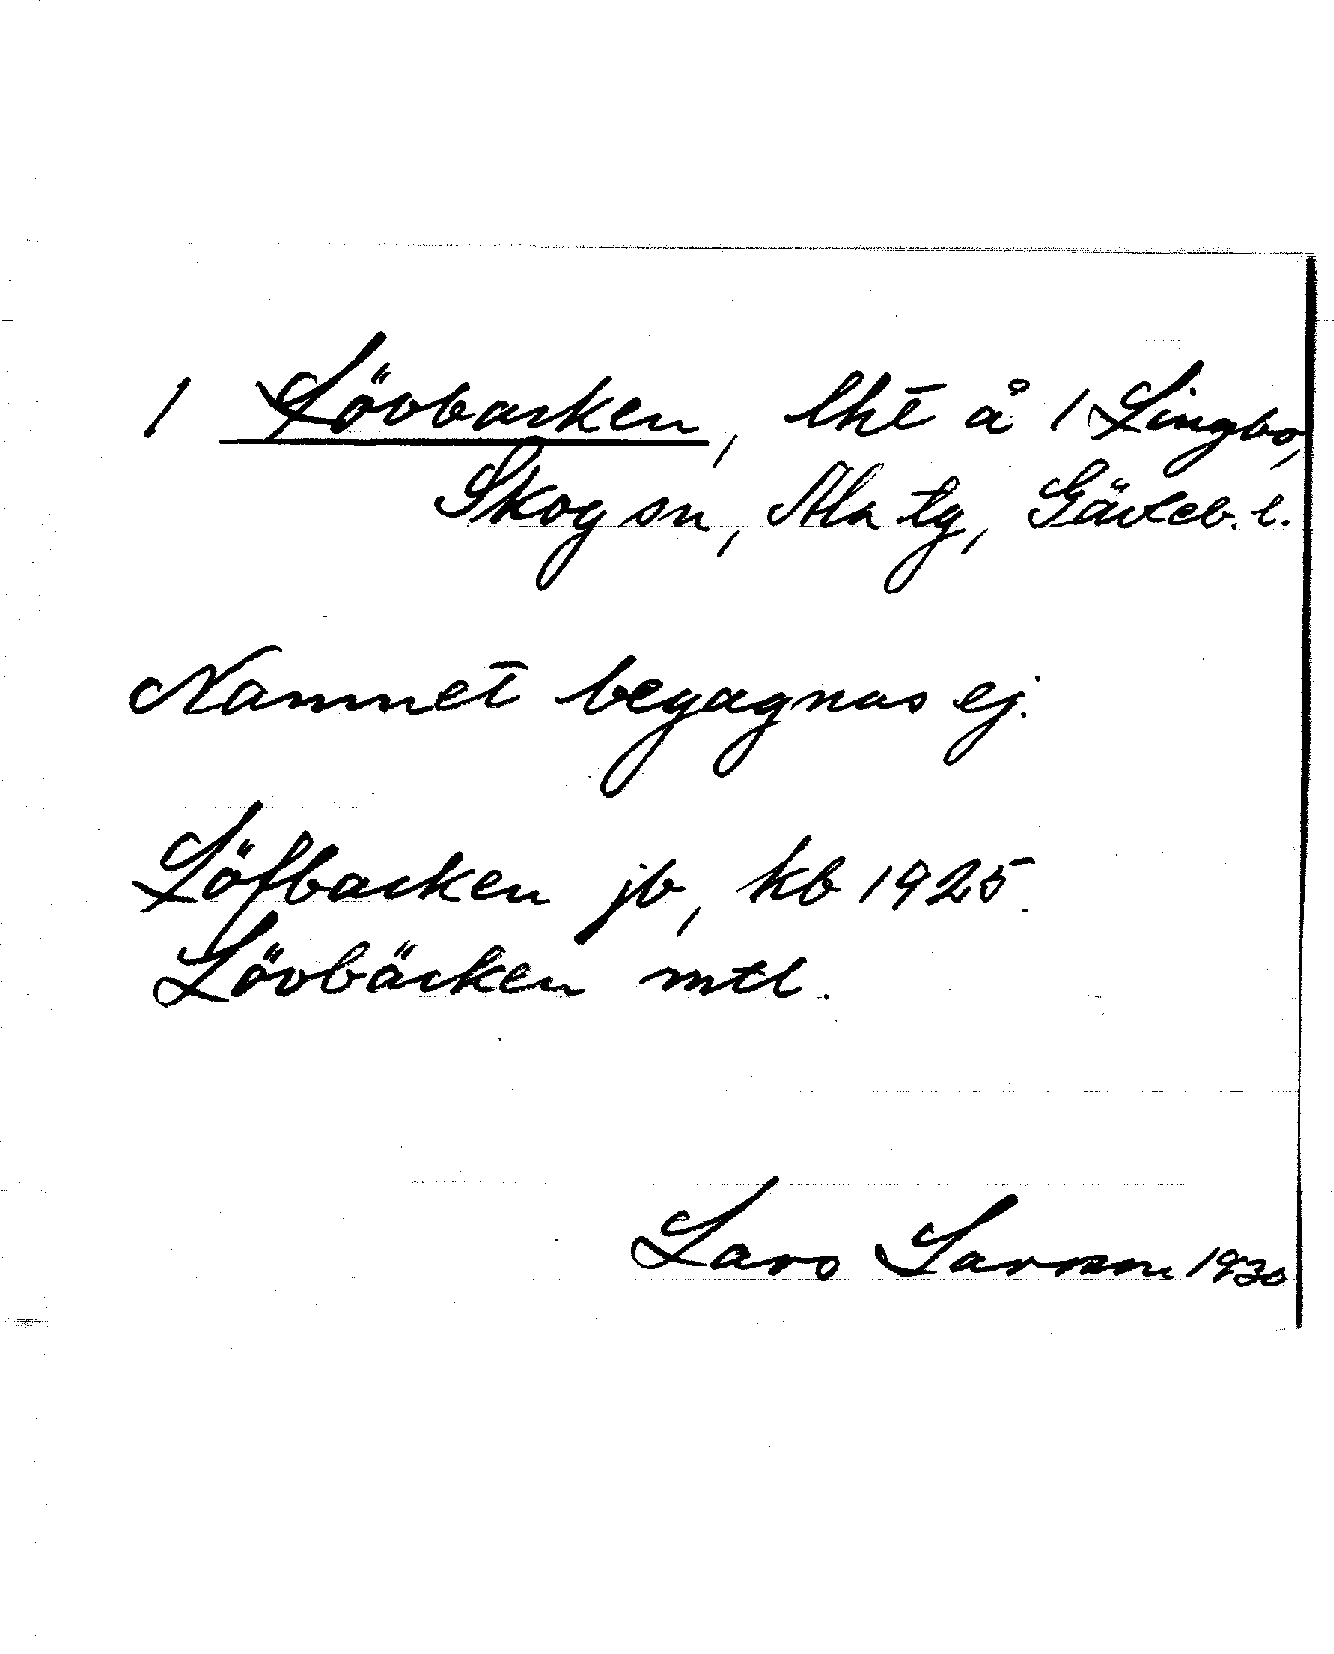 1 Lövbacken, lht å 1 Lingbo,
Skog sn, Ala tg, Gävleb. l.
Namnet begagnas ej.
Löfbacken jb, kb 1925.
Lövbäcken mtl.
Lars Larsson 1930